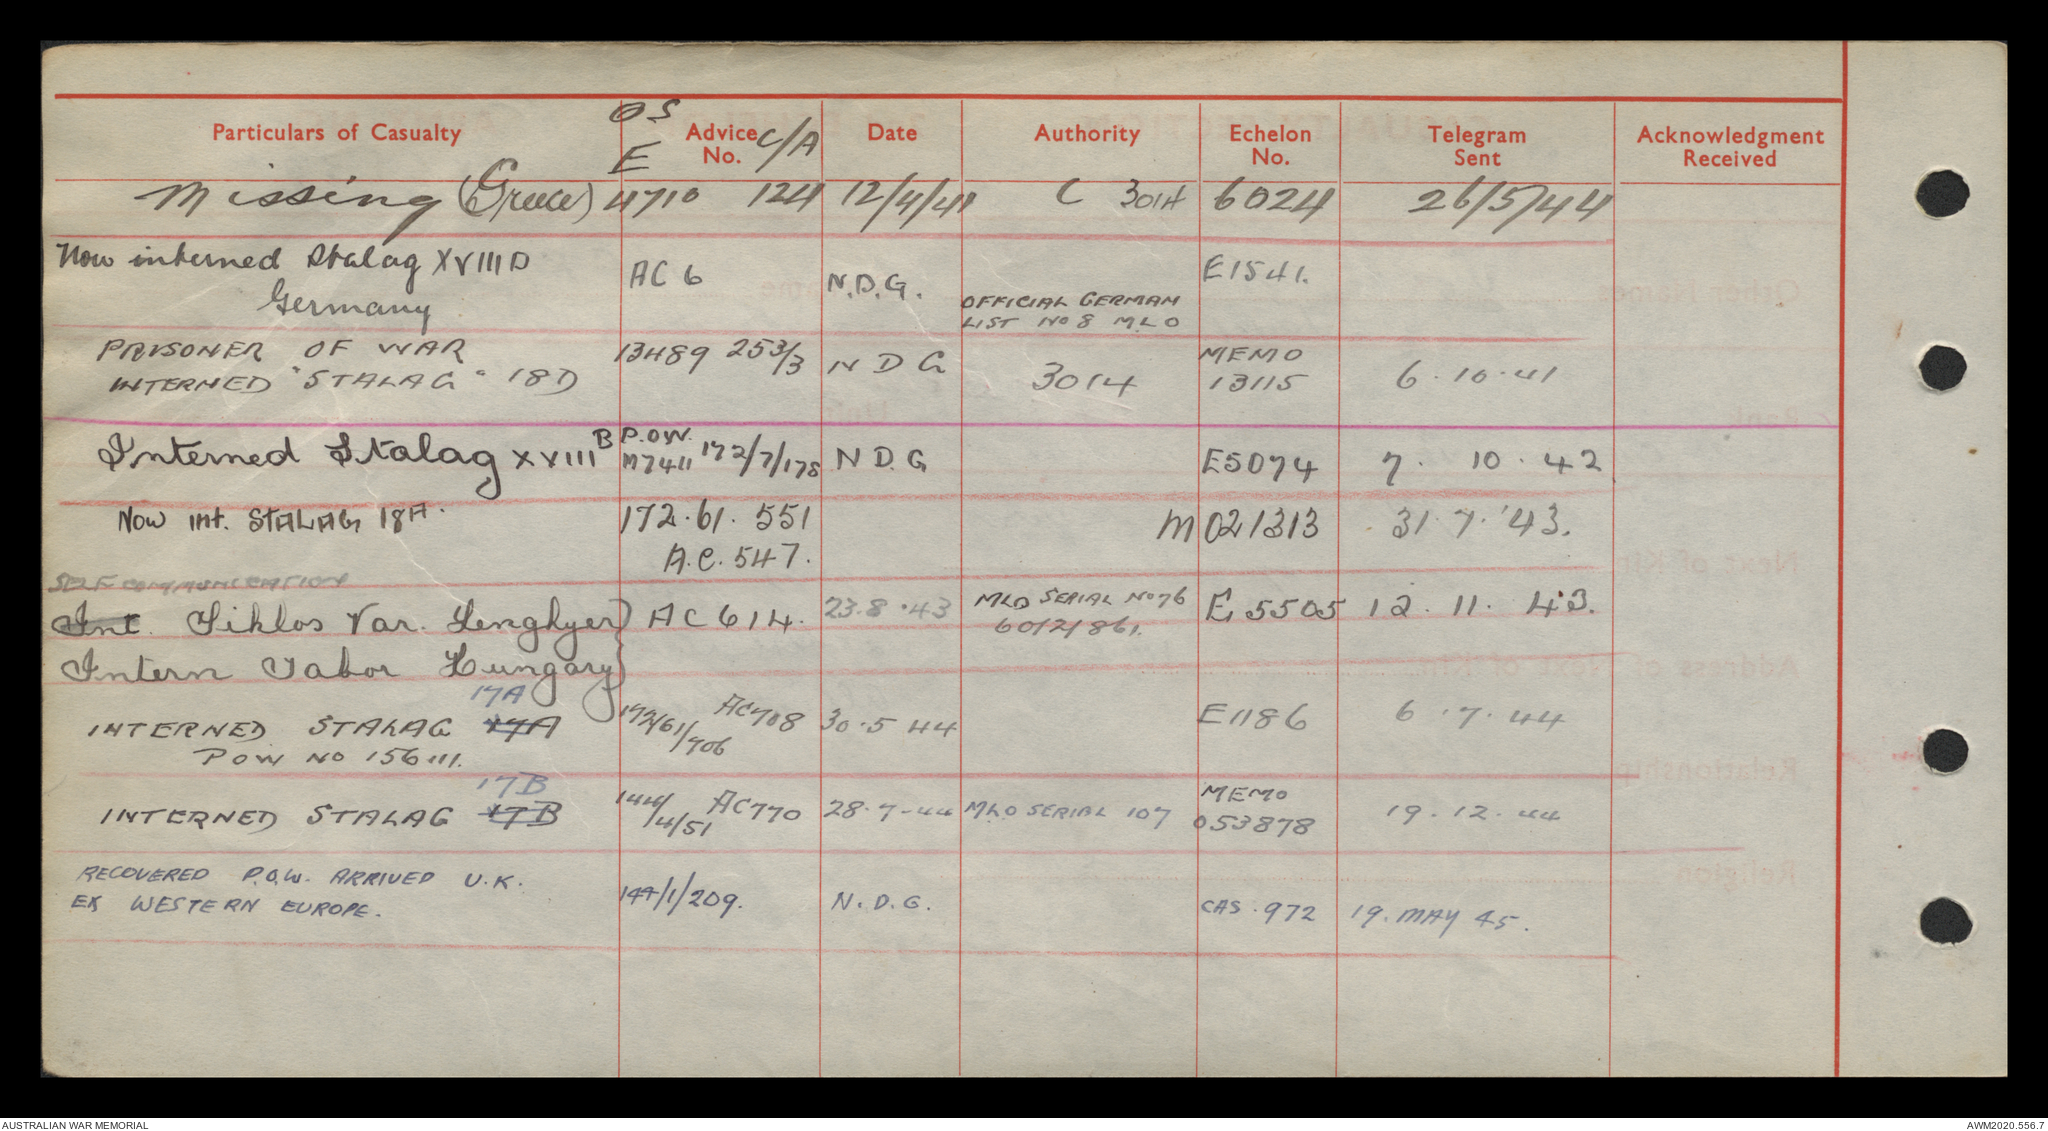 Particulars of Casualty OS E Advice No. C/A Date Authority Echelon No. Telegram Sent Acknowledgment Received
Missing (Greece) 4710 124 12/4/41 C 3014 6024 26/5/44
Now interned Stalag XVIIID AC 6 N.D.G. E1541.
Germany OFFICIAL GERMAN
LIST No 8 MLO
PRISONER OF WAR 13489 253/3 NDG 3014 MEMO
INTERNED "STALAG" 18D 13115 6.10.41
Interned Stalag XVIII B P.O.W. M7411 172/7/178 N D.G E5074 7. 10. 42
Now int. STALAG 18A. 172.61. 551 M021313 31.7.'43.
A.C. 547.
SELF COMMUNICATION
Int. Siklos Var. Lenghyer} AC 614. 23.8.43 MLO SERIAL No 76 E 5505 12. 11. 43.
60/21861.
Intern Tabor Hungary}
17A
INTERNED STALAG 17A 172/61/706 AC708 30.5 44 E1186 6.7.44
POW No 156111.
17B
INTERNED STALAG 17B 144/4/51 AC770 28.7-44 MLO SERIAL 107 MEMO 053878 19.12.44
RECOVERED P.O.W. ARRIVED U.K.
EX WESTERN EUROPE. 144/1/209. N.D.G. CAS.972 19.MAY 45.
AUSTRALIAN WAR MEMORIAL AWM2020.556.7